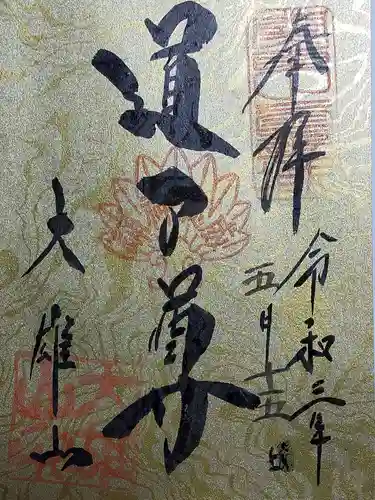 奉拝
令和三年
五月十五
道了尊
大雄山